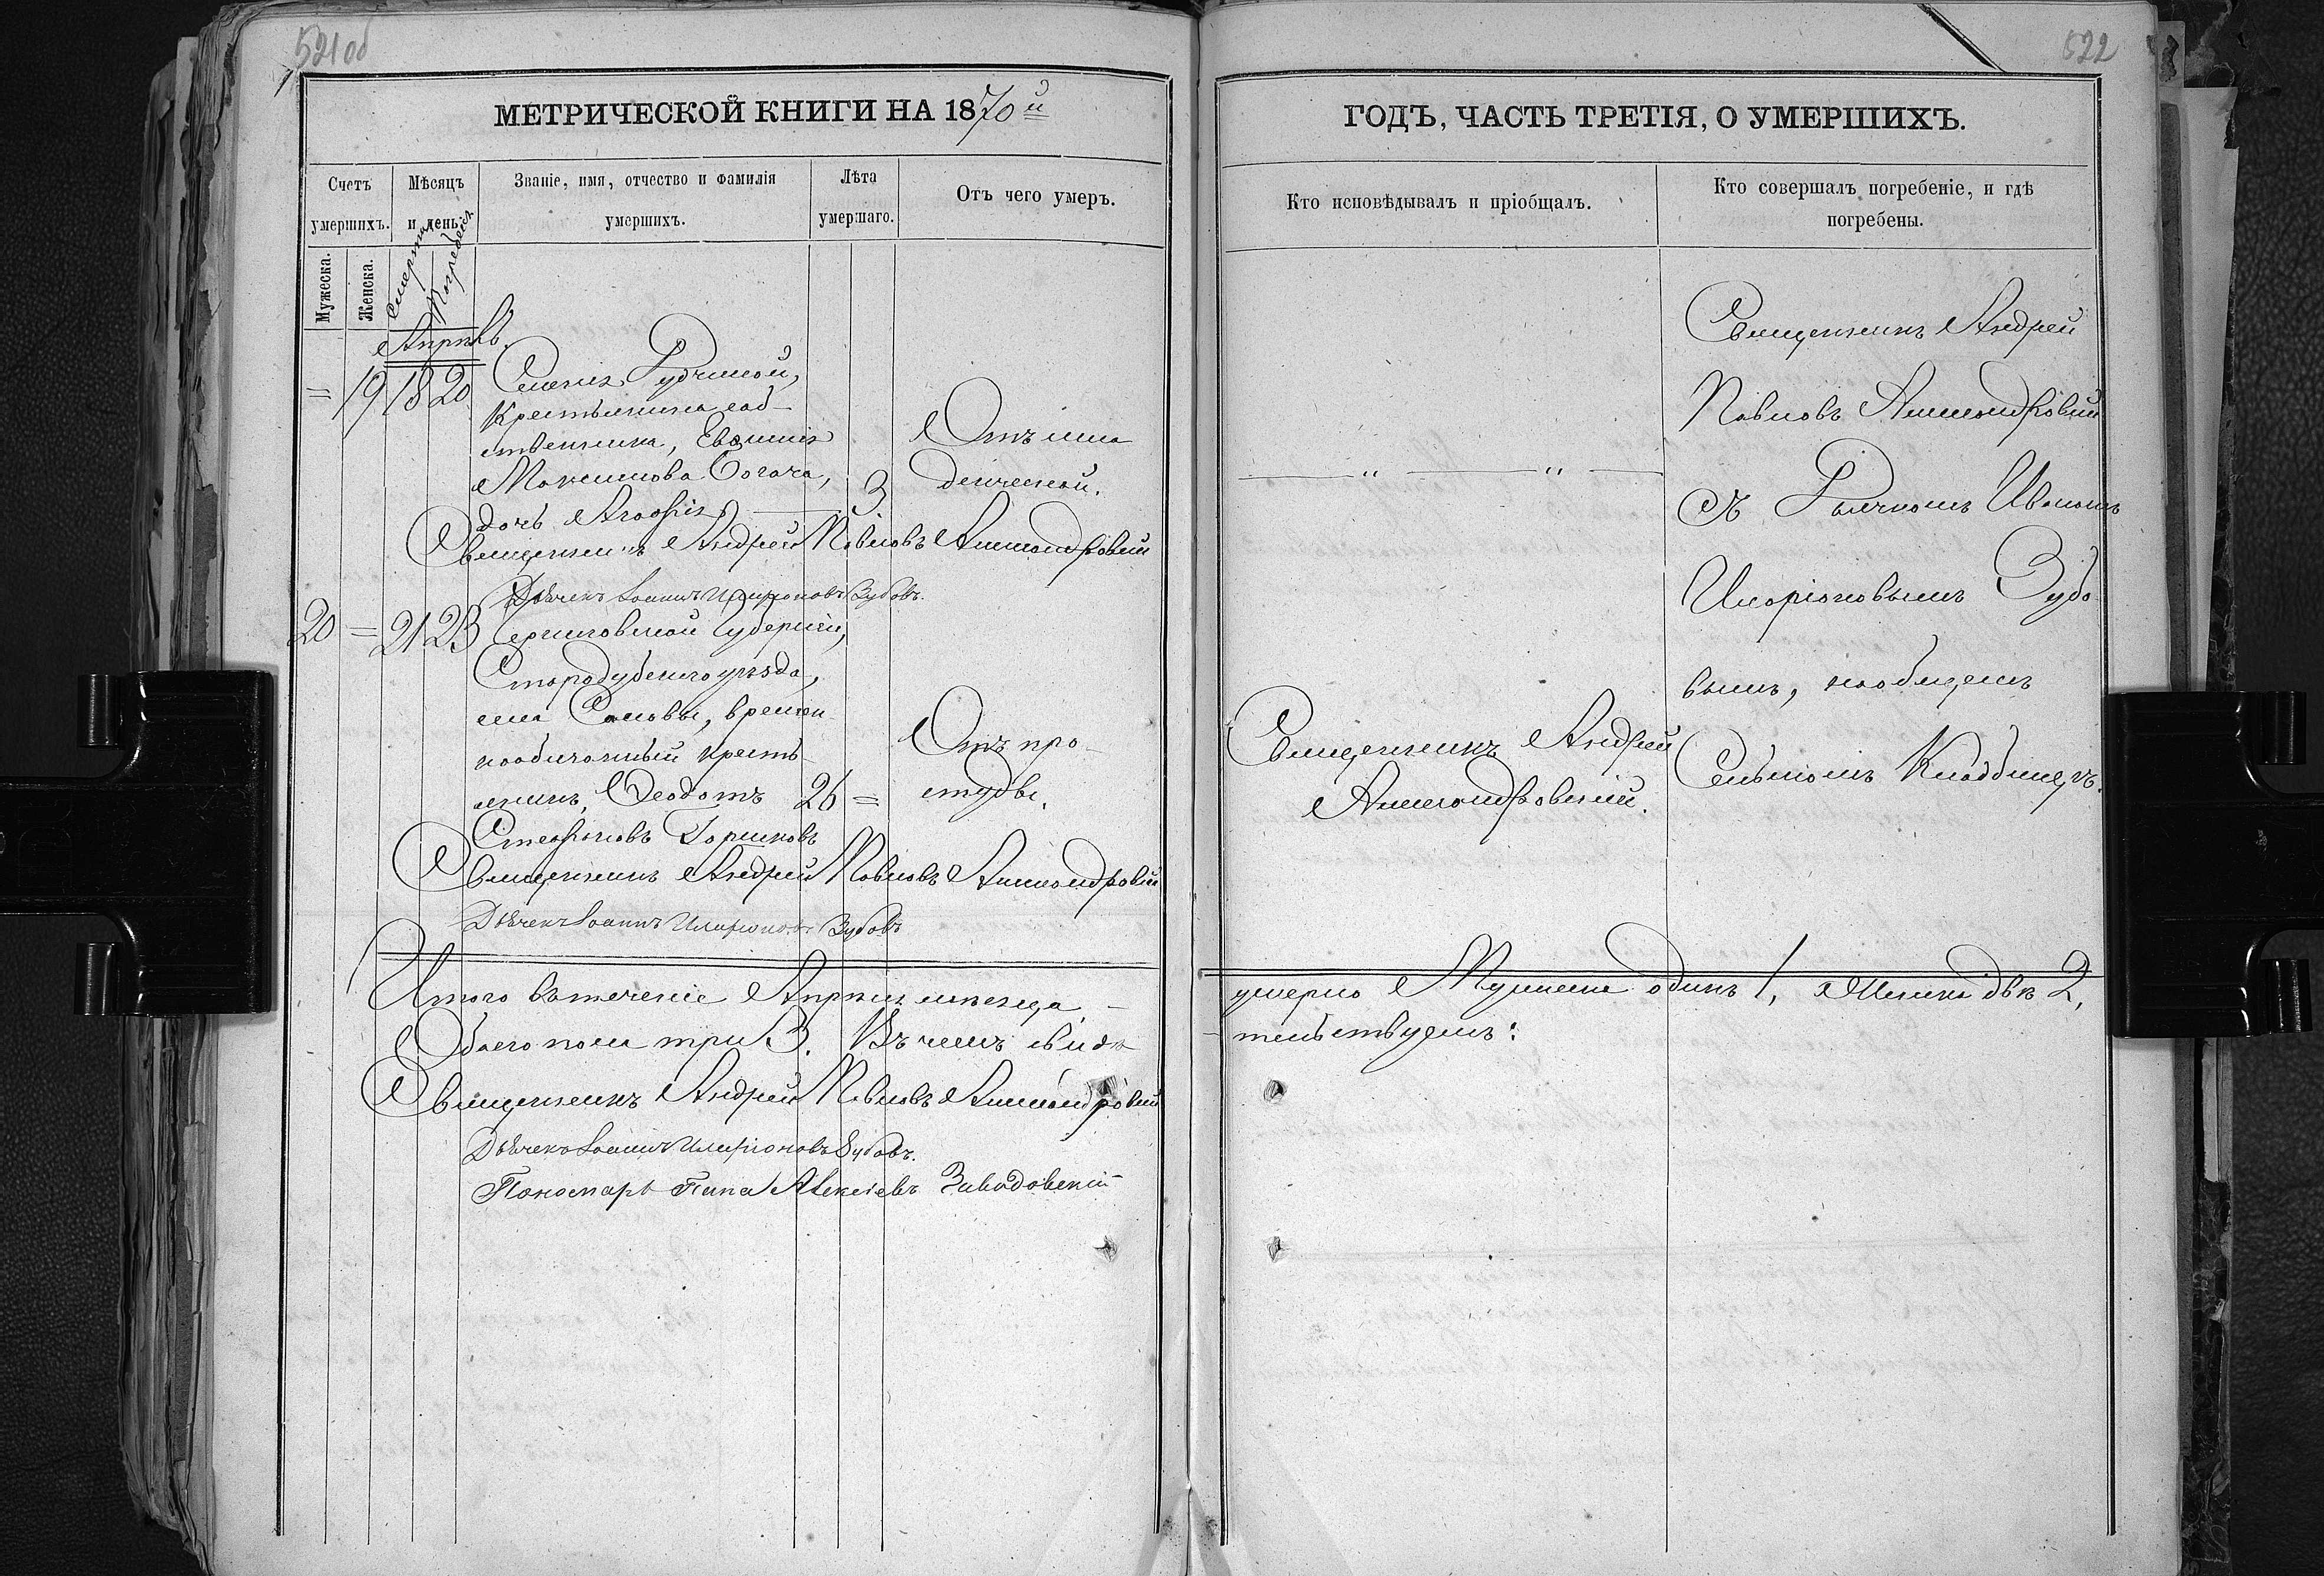 521об
МЕТРИЧЕСКОЙ КНИГИ НА 1870й
Счетъ умершихъ.
Мѣсяцъ и день:
Званіе, имя, отчество и фамилія умершихъ.
Лѣта умершаго.
Отъ чего умеръ.
Мужеска.
Женска.
Смерти
Погребенія
Апрѣль.
= 19 18 20
Рудчиной,
Крестьянина соб-
ственника, Евфимія
Максимова Богача, 3 Отъ мла
дочь Агафія денческой.
Священникъ Андрей Павловъ Александровскій
Дьячекъ Іоаннъ Иларіоновъ Зубовъ.
20 = 21 23 Черниговской Губерніи,
Стародубскаго уѣзда,
времен-
нообязанный кресть-
янинъ, Феодотъ 26 = Отъ про-
Стефановъ Горшковъ студы.
Священникъ Андрей Павловъ Александровскій
Дьячекъ Іоаннъ Иларіоновъ Зубовъ
Итого въ теченіе Апрѣля мѣсяца
Обоего пола три 3. Въ чемъ свидѣ
Священникъ Андрей Павловъ Александровскій
Дьячекъ Іоаннъ Иларіоновъ Зубовъ.
Пономарь Алексіевъ Завадовскій
522
ГОДЪ, ЧАСТЬ ТРЕТІЯ, О УМЕРШИХЪ.
Кто исповѣдывалъ и пріобщалъ.
Кто совершалъ погребеніе, и гдѣ погребены.
— " — " —
Священникъ Андрей
Александровскій.
Священникъ Андрей
Павловъ Александровскій
съ Дьячкомъ Иваномъ
Иларіоновымъ Зубо
вымъ, на общемъ
Сельскомъ Кладбищѣ.
умерло Мужеска одинъ 1, Женска двѣ 2,
тельствуемъ: